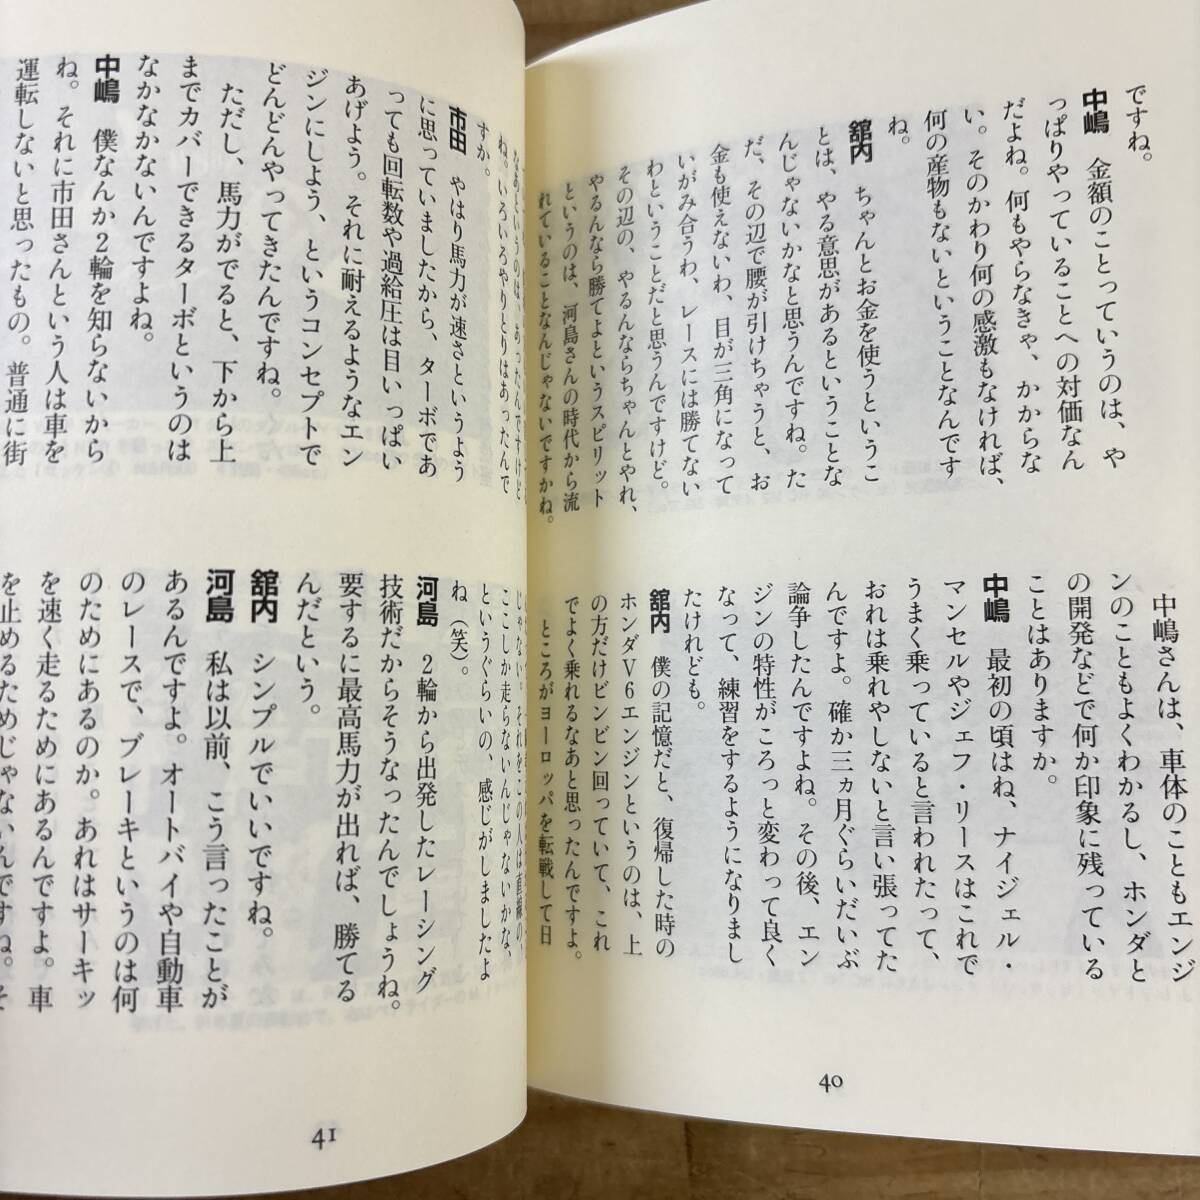 ですね。
中嶋　金額のことっていうのは、や
っぱりやっていることへの対価なん
だよね。何もやらなきゃ、かからな
い。そのかわり何の感激もなければ、
何の産物もないということなんです
ね。
舘内　ちゃんとお金を使うというこ
とは、やる意思があるということな
んじゃないかなと思うんですね。た
だ、その辺で腰が引けちゃうと、お
金も使えないわ、目が三角になって
いがみ合うわ、レースには勝てない
わということだと思うんですけど。
その辺の、やるんならちゃんとやれ、
やるんなら勝てよというスピリット
というのは、河島さんの時代から流
れていることなんじゃないですかね。
中嶋さんは、車体のこともエンジ
ンのこともよくわかるし、ホンダと
の開発などで何か印象に残っている
ことはありますか。
中嶋　最初の頃はね、ナイジェル・
マンセルやジェフ・リースはこれで
うまく乗っていると言われたって、
おれは乗れやしないと言い張ってた
んですよ。確か三ヵ月ぐらいだいぶ
論争したんですよね。その後、エン
ジンの特性がころっと変わって良く
なって、練習をするようになりまし
たけれども。
舘内　僕の記憶だと、復帰した時の
ホンダV6エンジンというのは、上
の方だけビンビン回っていて、これ
でよく乗れるなあと思ったんですよ。
ところがヨーロッパを転戦して日
40
なあというのは、あったんですけど
ね。いろいろやりとりはあったんで
すか。
市田　やはり馬力が速さというよう
に思っていましたから、ターボであ
っても回転数や過給圧は目いっぱい
あげよう。それに耐えるようなエン
ジンにしよう、というコンセプトで
どんどんやってきたんですね。
ただし、馬力がでると、下から上
までカバーできるターボというのは
なかなかないんですよね。
中嶋　僕なんか2輪を知らないから
ね。それに市田さんという人は車を
運転しないと思ったもの。普通に街
じゃない。それをこの人は直線の、
ここしか走らないんじゃないかな、
というぐらいの、感じがしましたよ
ね（笑）。
河島　2輪から出発したレーシング
技術だからそうなったんでしょうね。
要するに最高馬力が出れば、勝てる
んだという。
舘内　シンプルでいいですね。
河島　私は以前、こう言ったことが
あるんですよ。オートバイや自動車
のレースで、ブレーキというのは何
のためにあるのか。あれはサーキッ
を速く走るためにあるんですよ。車
を止めるためじゃないんですね。そ
41